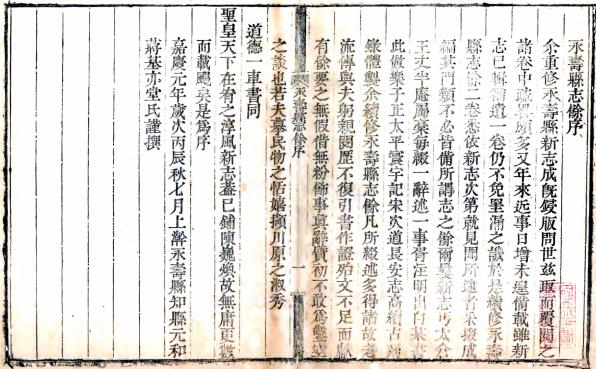 永壽縣志餘序
余重修永壽縣新志成旣鋟版問世茲取而覆閱之
諸卷中疏畧頗多又年來近事日增未遑備載雖新
志已輯補遺一卷仍不免里漏之譏於是續修永壽
縣志餘二卷悉依新志次第就見聞所逮者采掇成
編其門類不必皆備所謂志之餘爾曩新志丐太倉
王丈半庵屬稾每綴一辭述一事胥注明出自某書
此倣樂子正太平寰宇記宋次道長安志高續古剡
錄體製余續修永壽縣志餘凡所綴述多得諸故老
流傳與夫躬親閱歷不復引書作證殆文不足而獻
有餘要之無假借無粉飾事眞辭質初不敢爲鑿空
永壽縣志餘序
一
之談也若夫摹民物之恬嬉擷川原之淑秀
道德一車書同
聖皇天下在宥之淳風新志蓋已鋪陳巍煥故無庸更贅
而載颺矣是爲序
嘉慶元年歲次丙辰秋七月上澣永壽縣知縣元和
蔣基亦堂氏謹撰